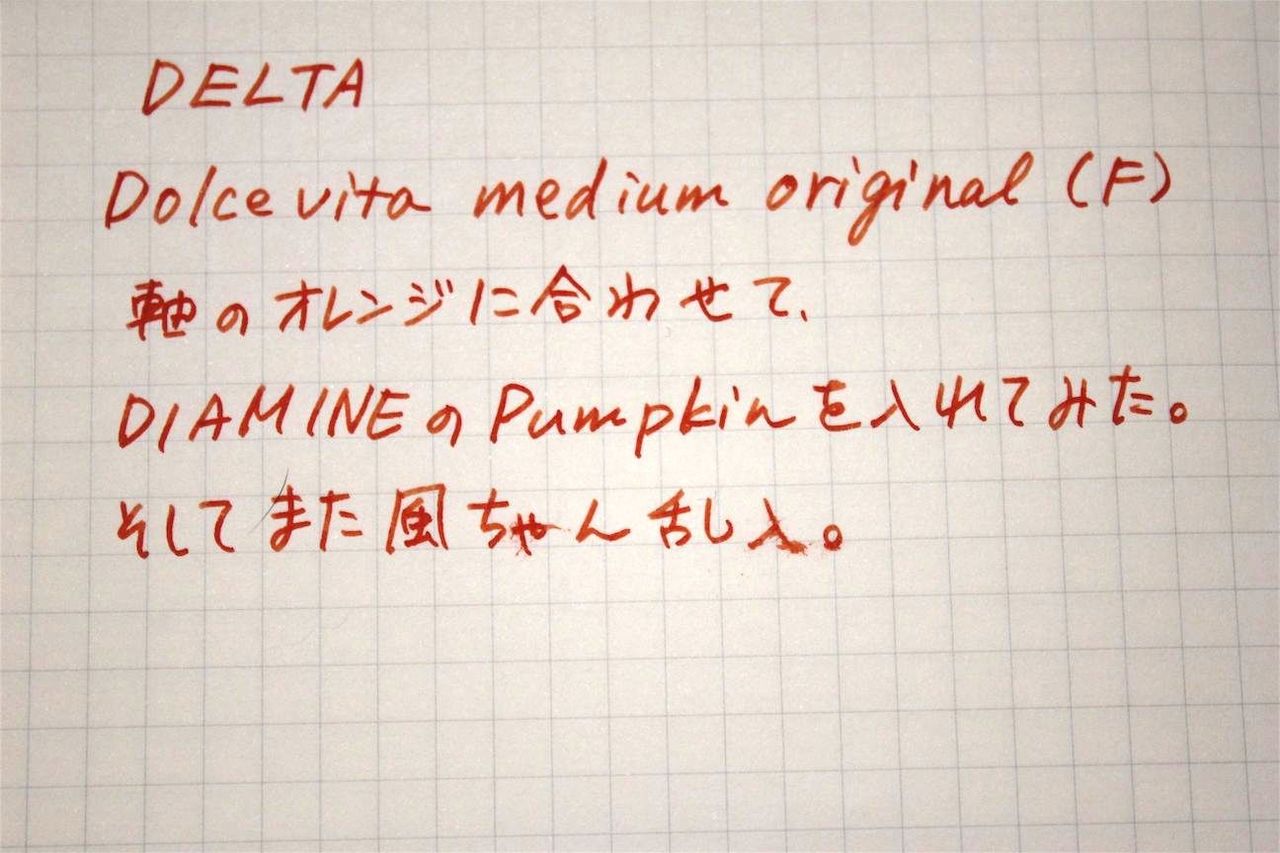 DELTA
Dolce vita medium original (F)
軸のオレンジに合わせて、
DIAMINEのPumpkinを入れてみた。
そしてまた風ちゃん乱入。